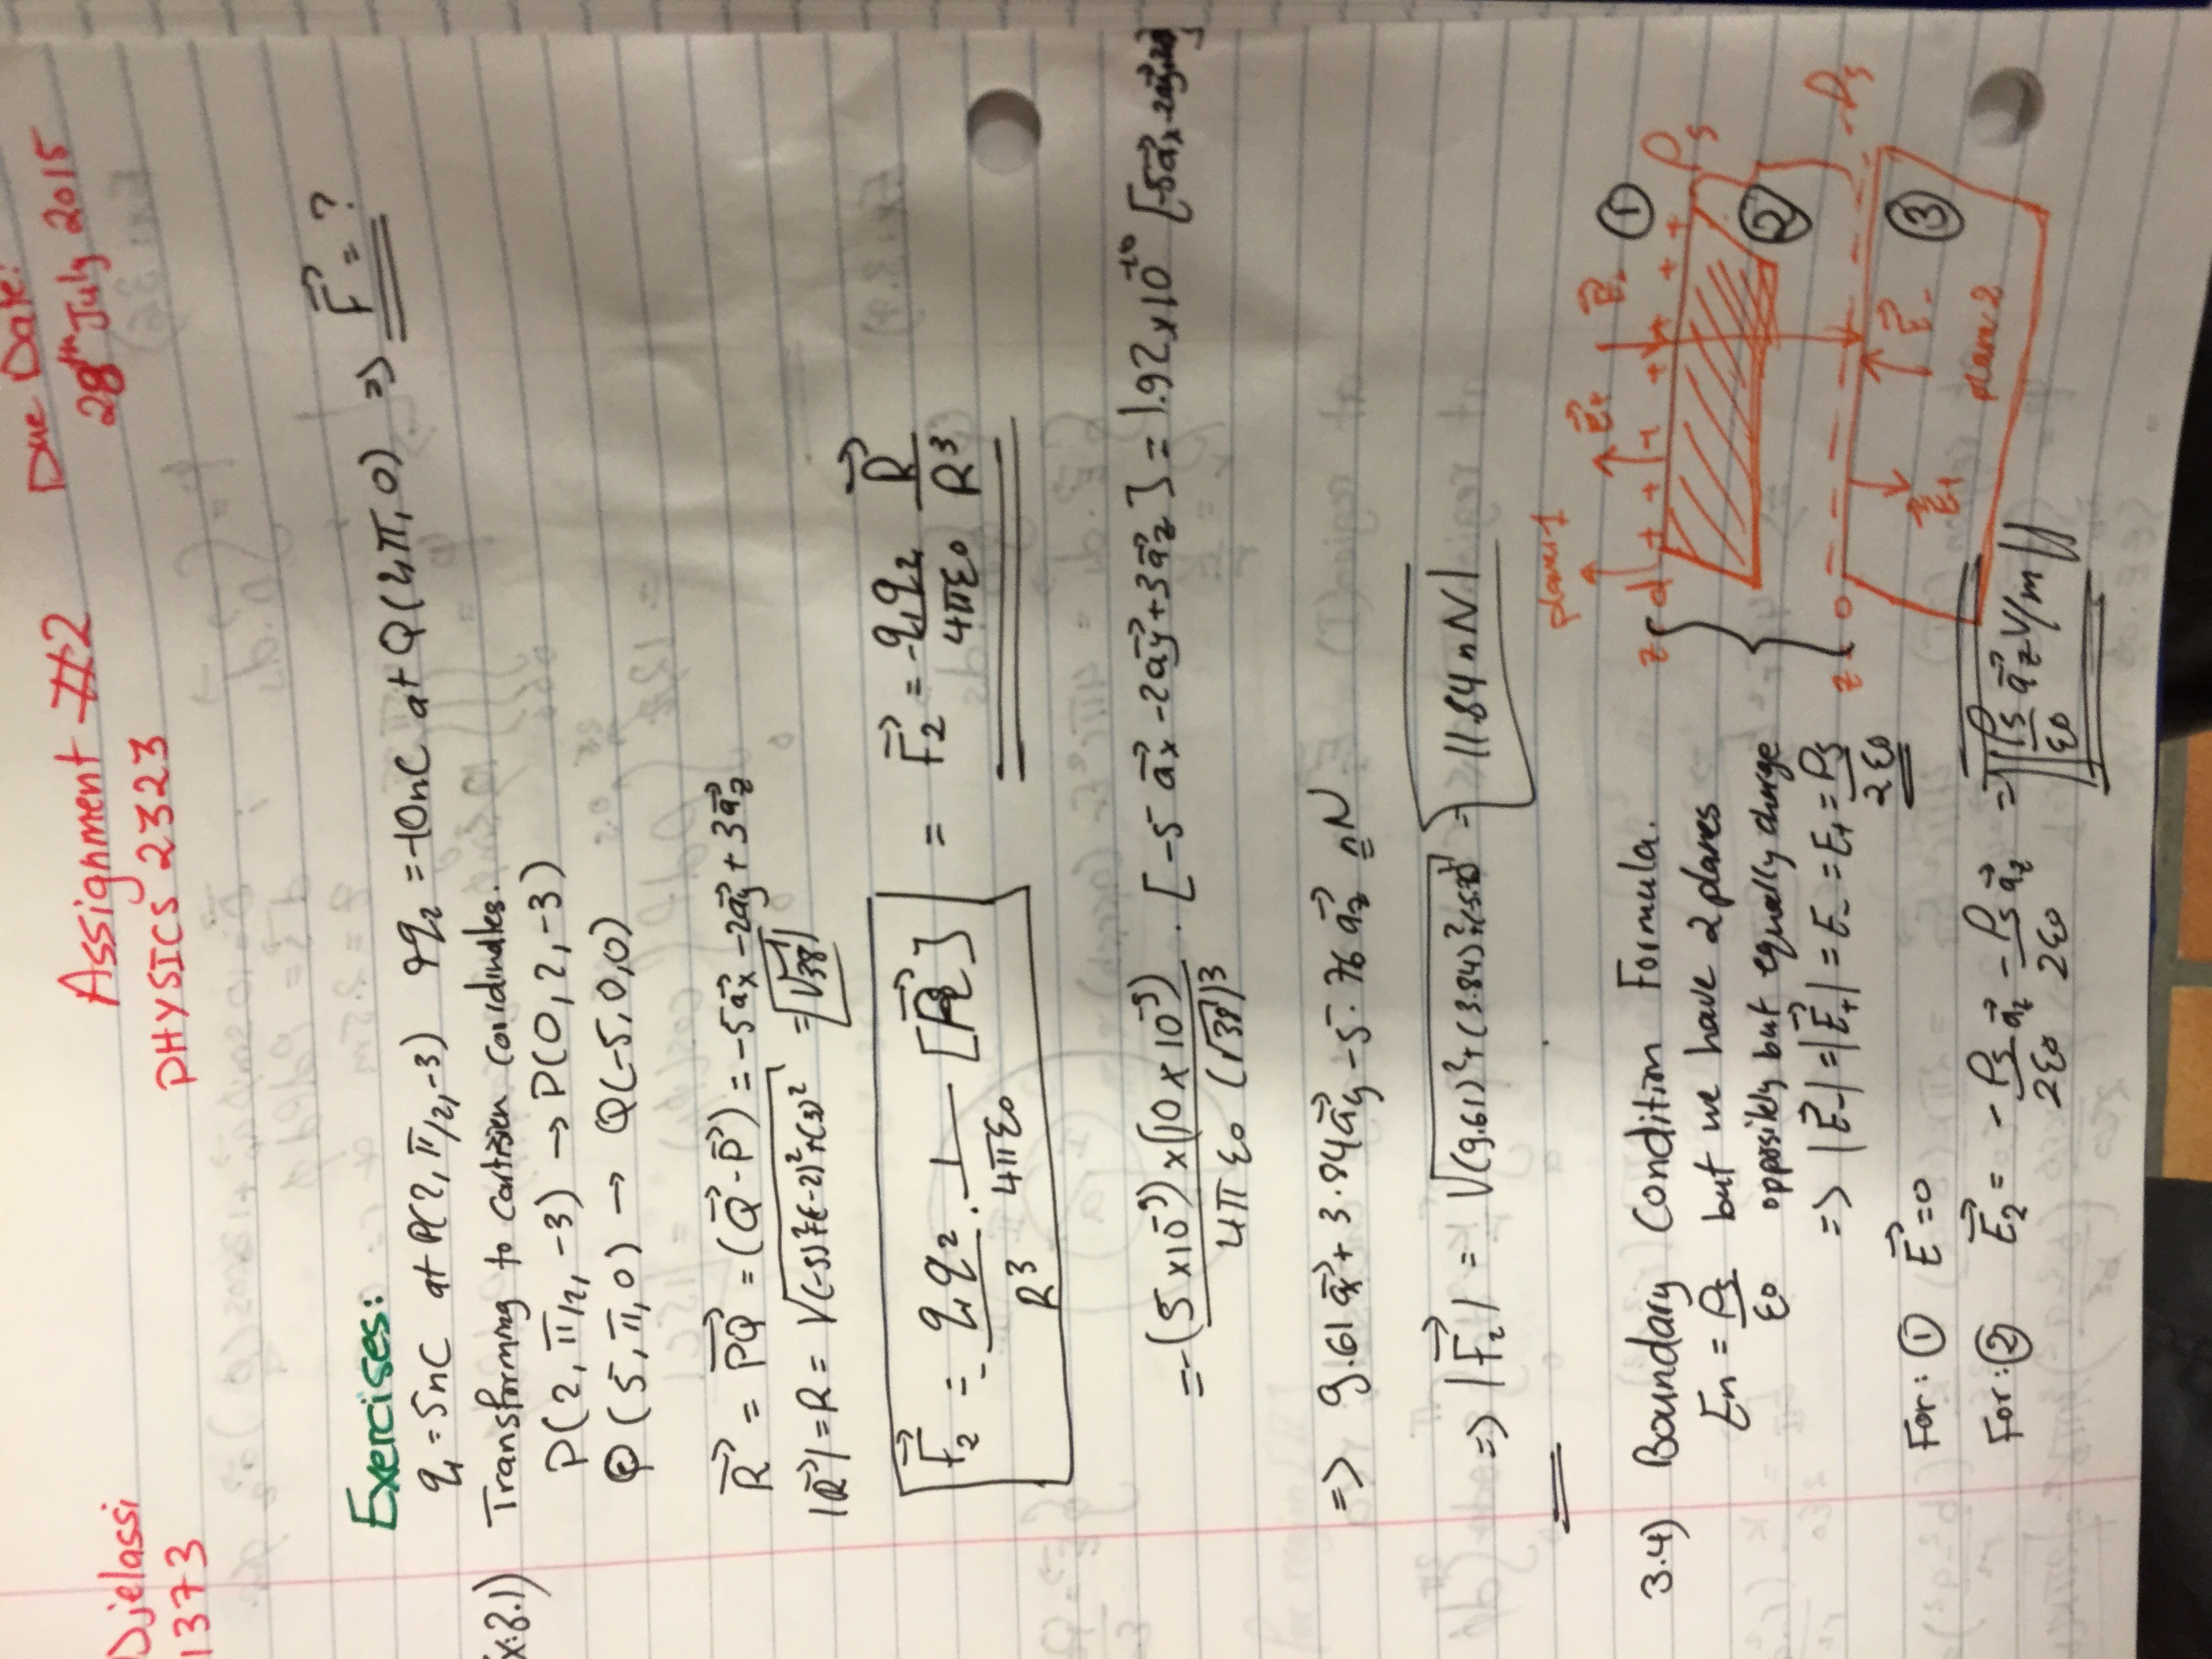 Djelassi
1373
Assignment #2
PHYSICS 2323
Due Date:
28th July 2015
Exercises:
x:3.1) q₁ = 5nC at P(2, π/2, -3) q q₂ = -10nC at Q(4π, 0) => F⃗ = ?
Transforming to cartisien coordinates.
P(2, π/2, -3) → P(0, 2, -3)
Q(5, π, 0) → Q(-5, 0, 0)
R⃗ = PQ⃗ = (Q⃗ - P⃗) = -5a⃗x - 2a⃗y + 3a⃗z
|R⃗| = R = √(-5)²+(-2)²+(3)² = √38
F⃗₂ = - q₁q₂/R³ · 1/4πε₀ [PQ⃗] = F⃗₂ = - q₁q₂/4πε₀ R⃗/R³
= - (5x10⁻⁹)x(10x10⁻⁹)/4πε₀ (√38)³ · [-5a⃗x - 2a⃗y + 3a⃗z] = 1.92x10⁻¹⁰
=> 9.61a⃗x + 3.84a⃗y - 5.76a⃗z nN
=> |F⃗₂| = √(9.61)²+(3.84)²+(5.76)² = 11.84 nN
3.4) Boundary Condition Formula.
En = ρs/ε₀ but we have 2 planes
oppositely but equally charge
=> |E⃗-| = |E⃗+| = E- = E+ = ρs/2ε₀
For: ① E⃗ = 0
For: ② E⃗₂ = - ρs/2ε₀ a⃗z - ρs/2ε₀ a⃗z = - ρs/ε₀ a⃗z V/m
plane 1
E⃗+ E⃗-
①
z = d + + + + + + ρs
②
z = 0 - - - - -ρs
③
E⃗+ E⃗-
plane 2